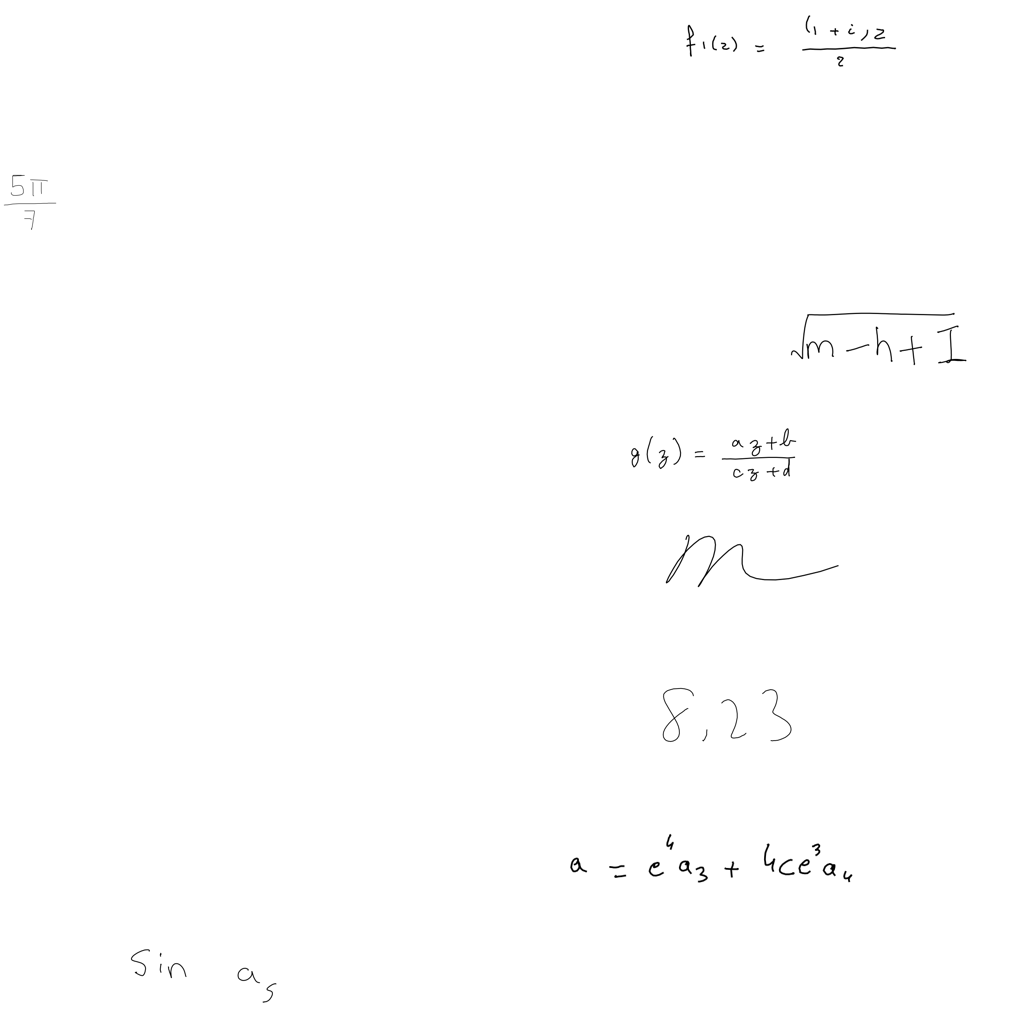 f₁(z) = (1+i)z / 2
5π / 7
√(m-h+I)
g(z) = (az+b) / (cz+d)
m
8,23
a = e⁴a₃ + 4ce³a₄
sin a₅